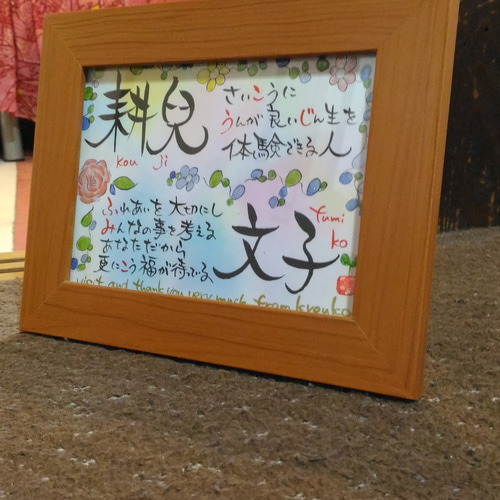 耕兒
kou ji
さいこうに
うんが良いじん生を
体験できる人
ふれあいを大切にし
みんなの事を考える
あなただから
更にこう福が待ってる、
文子
Yumi
ko
visit and thank you very much from kyouko